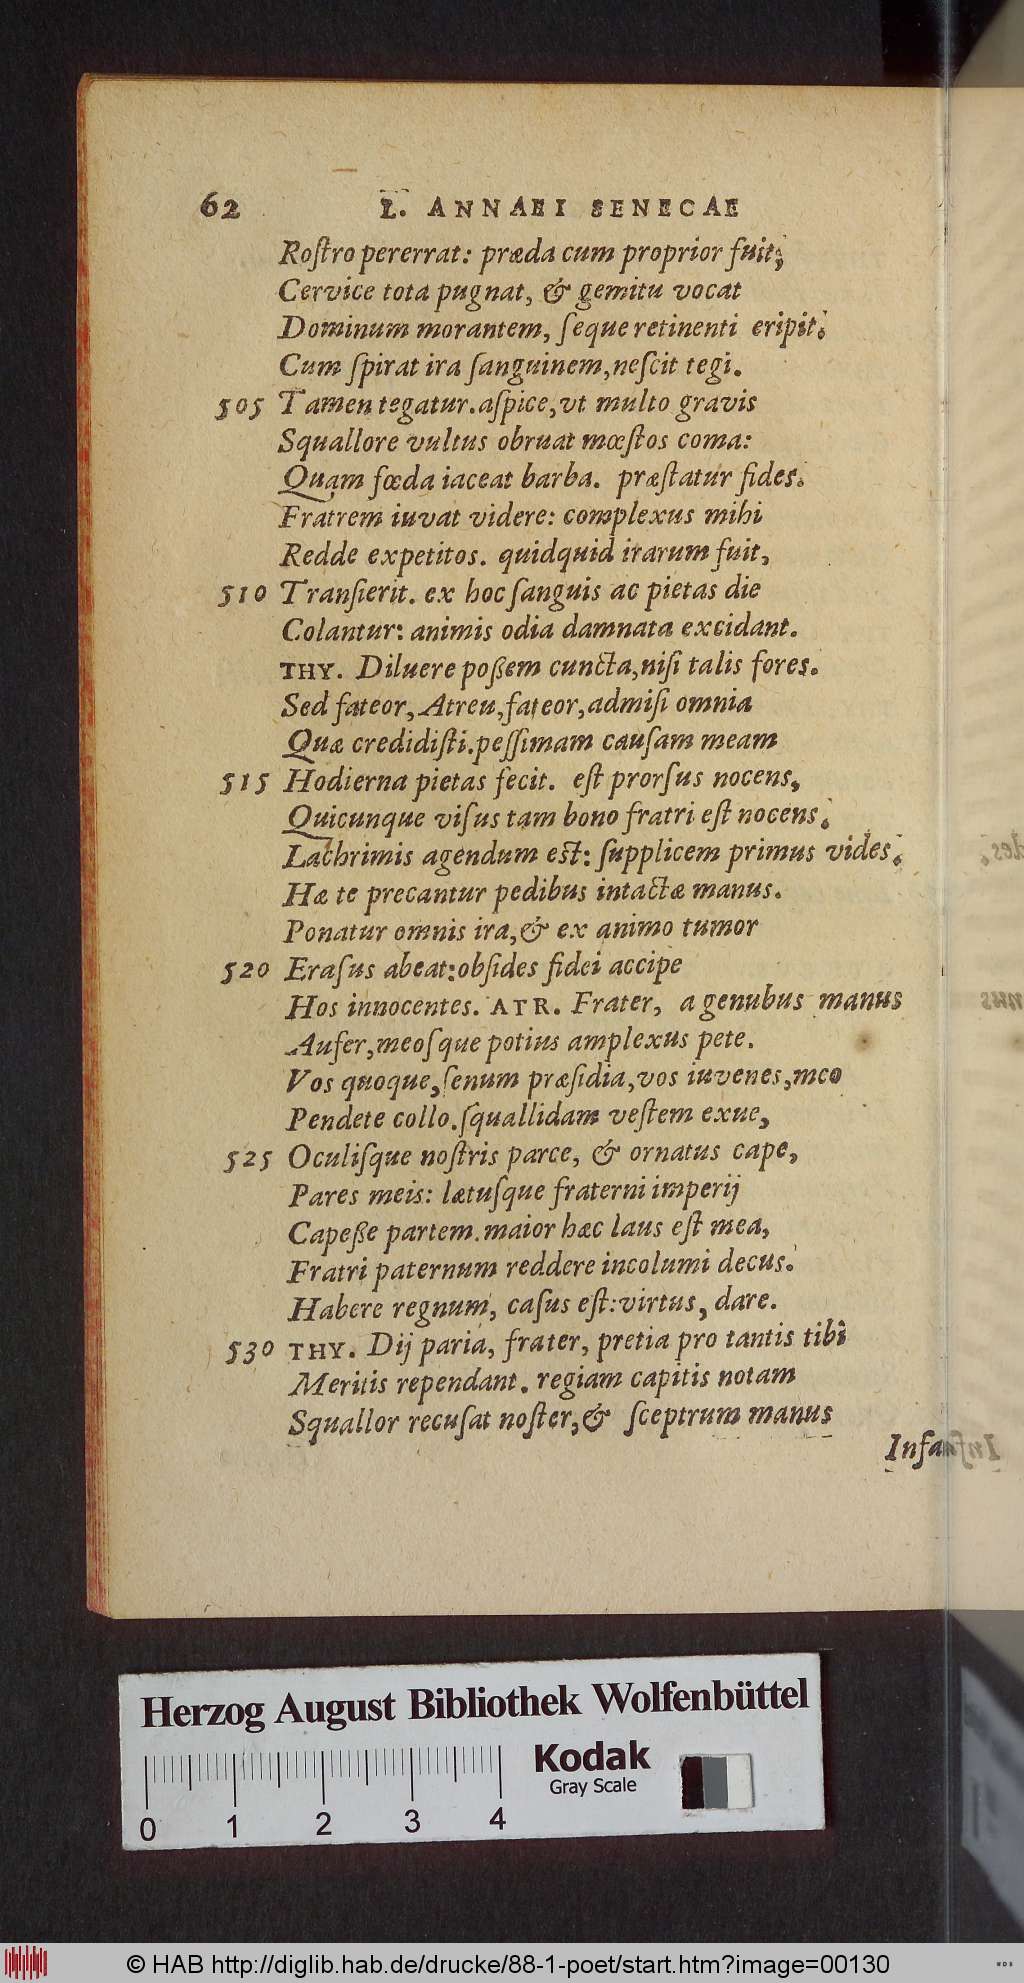 62 L. ANNAEI SENECAE
Roſtro pererrat: præda cum proprior fuit;
Cervice tota pugnat, & gemitu vocat
Dominum morantem, ſeque retinenti eripit.
Cum ſpirat ira ſanguinem, neſcit tegi.
505 Tamen tegatur. aſpice, vt multo gravis
Squallore vultus obruat mœſtos coma:
Quam fœda iaceat barba. præſtatur fides.
Fratrem iuvat videre: complexus mihi
Redde expetitos. quidquid irarum fuit,
510 Tranſierit. ex hoc ſanguis ac pietas die
Colantur: animis odia damnata excidant.
THY. Diluere poßem cuncta, niſi talis fores.
Sed fateor, Atreu, fateor, admiſi omnia
Quæ credidiſti. peſſimam cauſam meam
515 Hodierna pietas fecit. eſt prorſus nocens,
Quicunque viſus tam bono fratri eſt nocens.
Lachrimis agendum eſt: ſupplicem primus vides.
Hæ te precantur pedibus intactæ manus.
Ponatur omnis ira, & ex animo tumor
520 Eraſus abeat: obſides fidei accipe
Hos innocentes. ATR. Frater, a genubus manus
Aufer, meoſque potius amplexus pete.
Vos quoque, ſenum præſidia, vos iuvenes, meo
Pendete collo. ſquallidam veſtem exue,
525 Oculiſque noſtris parce, & ornatus cape,
Pares meis: lætuſque fraterni imperij
Capeße partem. maior hæc laus eſt mea,
Fratri paternum reddere incolumi decus.
Habere regnum, caſus eſt: virtus, dare.
530 THY. Dij paria, frater, pretia pro tantis tibi
Meritis rependant. regiam capitis notam
Squallor recuſat noſter, & ſceptrum manus
Infau
Herzog August Bibliothek Wolfenbüttel
Kodak
Gray Scale
0 1 2 3 4
© HAB http://diglib.hab.de/drucke/88-1-poet/start.htm?image=00130